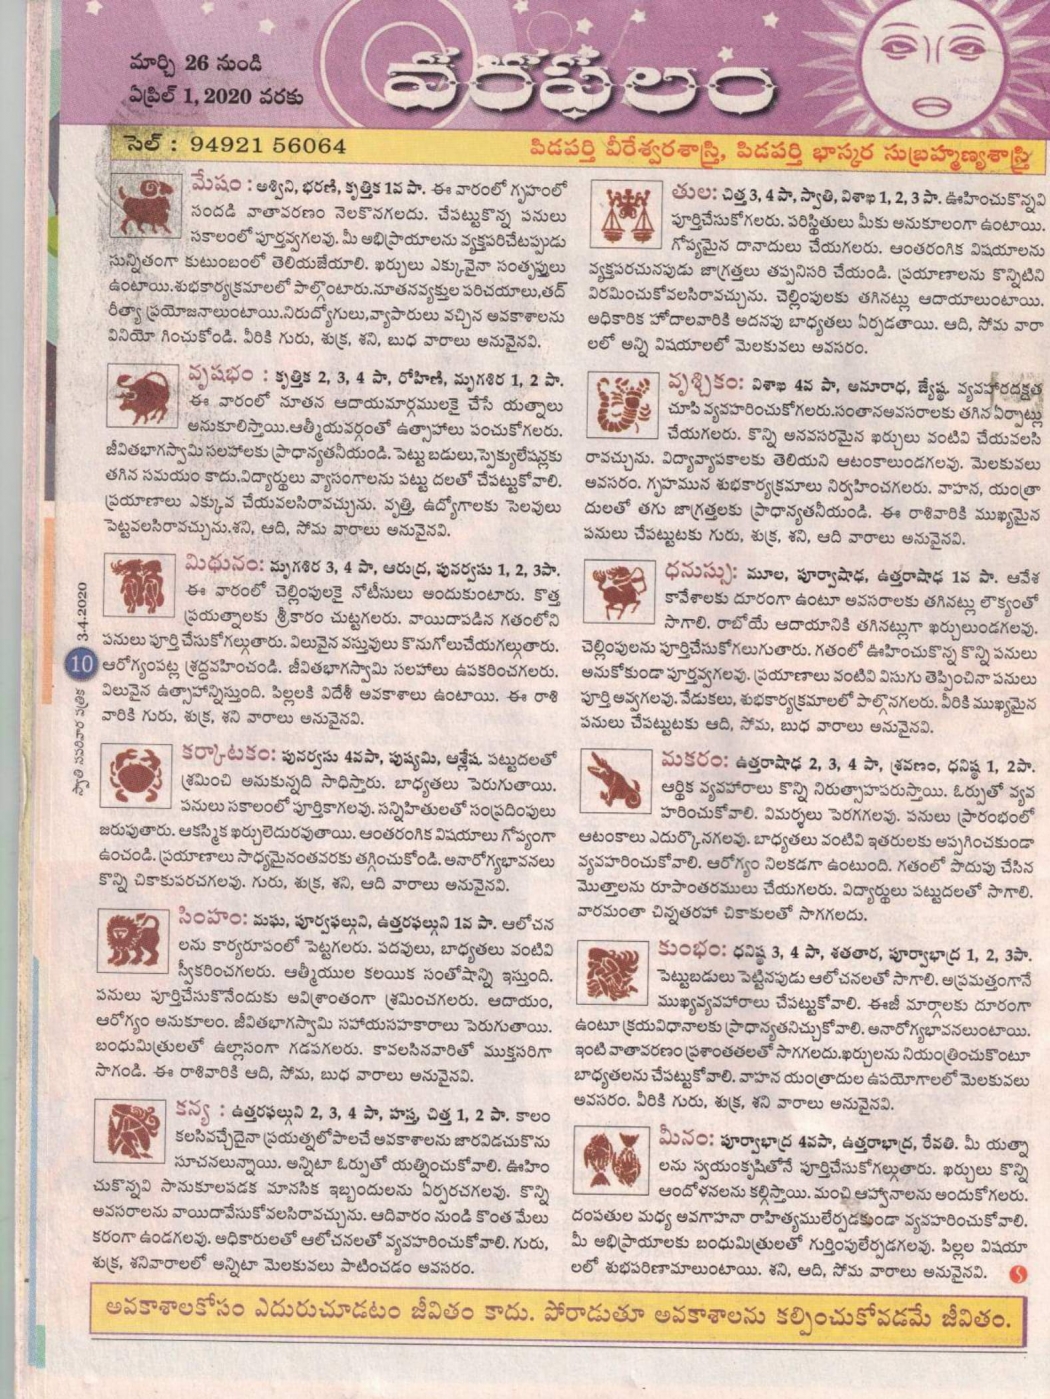 మార్చి 26 నుండి
ఏప్రిల్ 1, 2020 వరకు
వారఫలం
సెల్ : 94921 56064
పిడపర్తి వీరేశ్వరశాస్త్రి, పిడపర్తి భాస్కర సుబ్రహ్మణ్యశాస్త్రి
మేషం: అశ్విని, భరణి, కృత్తిక 1వ పా. ఈ వారంలో గృహంలో
సందడి వాతావరణం నెలకొనగలదు. చేపట్టుకొన్న పనులు
సకాలంలో పూర్తవ్వగలవు. మీ అభిప్రాయాలను వ్యక్తపరిచేటప్పుడు
సున్నితంగా కుటుంబంలో తెలియజేయాలి. ఖర్చులు ఎక్కువైనా సంతృప్తులు
ఉంటాయి.శుభకార్యక్రమాలలో పాల్గొంటారు.నూతనవ్యక్తుల పరిచయాలు,తద్
రీత్యా ప్రయోజనాలుంటాయి.నిరుద్యోగులు,వ్యాపారులు వచ్చిన అవకాశాలను
వినియో గించుకోండి. వీరికి గురు, శుక్ర, శని, బుధ వారాలు అనువైనవి.
వృషభం : కృత్తిక 2, 3, 4 పా, రోహిణి, మృగశిర 1, 2 పా.
ఈ వారంలో నూతన ఆదాయమార్గములకై చేసే యత్నాలు
అనుకూలిస్తాయి.ఆత్మీయవర్గంతో ఉత్సాహాలు పంచుకోగలరు.
జీవితభాగస్వామి సలహాలకు ప్రాధాన్యతనీయండి. పెట్టు బడులు,స్పెక్యులేషన్లకు
తగిన సమయం కాదు.విద్యార్థులు వ్యాసంగాలను పట్టు దలతో చేపట్టుకోవాలి.
ప్రయాణాలు ఎక్కువ చేయవలసిరావచ్చును. వృత్తి, ఉద్యోగాలకు సెలవులు
పెట్టవలసిరావచ్చును.శని, ఆది, సోమ వారాలు అనువైనవి.
మిథునం: మృగశిర 3, 4 పా, ఆరుద్ర, పునర్వసు 1, 2, 3పా.
ఈ వారంలో చెల్లింపులకై నోటీసులు అందుకుంటారు. కొత్త
ప్రయత్నాలకు శ్రీకారం చుట్టగలరు. వాయిదాపడిన గతంలోని
పనులు పూర్తి చేసుకోగల్గుతారు. విలువైన వస్తువులు కొనుగోలుచేయగల్గుతారు.
ఆరోగ్యంపట్ల శ్రద్ధవహించండి. జీవితభాగస్వామి సలహాలు ఉపకరించగలరు.
విలువైన ఉత్సాహాన్నిస్తుంది. పిల్లలకి విదేశీ అవకాశాలు ఉంటాయి. ఈ రాశి
వారికి గురు, శుక్ర, శని వారాలు అనువైనవి.
కర్కాటకం: పునర్వసు 4వపా, పుష్యమి, ఆశ్లేష. పట్టుదలతో
శ్రమించి అనుకున్నది సాధిస్తారు. బాధ్యతలు పెరుగుతాయి.
పనులు సకాలంలో పూర్తికాగలవు. సన్నిహితులతో సంప్రదింపులు
జరుపుతారు. ఆకస్మిక ఖర్చులెదురవుతాయి. ఆంతరంగిక విషయాలు గోప్యంగా
ఉంచండి. ప్రయాణాలు సాధ్యమైనంతవరకు తగ్గించుకోండి. అనారోగ్యభావనలు
కొన్ని చికాకుపరచగలవు. గురు, శుక్ర, శని, ఆది వారాలు అనువైనవి.
సింహం: మఘ, పూర్వఫల్గుని, ఉత్తరఫల్గుని 1వ పా. ఆలోచన
లను కార్యరూపంలో పెట్టగలరు. పదవులు, బాధ్యతలు వంటివి
స్వీకరించగలరు. ఆత్మీయుల కలయిక సంతోషాన్ని ఇస్తుంది.
పనులు పూర్తిచేసుకొనేందుకు అవిశ్రాంతంగా శ్రమించగలరు. ఆదాయం,
ఆరోగ్యం అనుకూలం. జీవితభాగస్వామి సహాయసహకారాలు పెరుగుతాయి.
బంధుమిత్రులతో ఉల్లాసంగా గడపగలరు. కావలసినవారితో ముక్తసరిగా
సాగండి. ఈ రాశివారికి ఆది, సోమ, బుధ వారాలు అనువైనవి.
కన్య : ఉత్తరఫల్గుని 2, 3, 4 పా, హస్త, చిత్త 1, 2 పా. కాలం
కలసివచ్చేదైనా ప్రయత్నలోపాలచే అవకాశాలను జారవిడచుకొను
సూచనలున్నాయి. అన్నిటా ఓర్పుతో యత్నించుకోవాలి. ఊహిం
చుకొన్నవి సానుకూలపడక మానసిక ఇబ్బందులను ఏర్పరచగలవు. కొన్ని
అవసరాలను వాయిదావేసుకోవలసిరావచ్చును. ఆదివారం నుండి కొంత మేలు
కరంగా ఉండగలవు. అధికారులతో ఆలోచనలతో వ్యవహరించుకోవాలి. గురు,
శుక్ర, శనివారాలలో అన్నిటా మెలకువలు పాటించడం అవసరం.
తుల: చిత్త 3, 4 పా, స్వాతి, విశాఖ 1, 2, 3 పా. ఊహించుకొన్నవి
పూర్తిచేసుకోగలరు. పరిస్థితులు మీకు అనుకూలంగా ఉంటాయి.
గోప్యమైన దానాదులు చేయగలరు. ఆంతరంగిక విషయాలను
వ్యక్తపరచునపుడు జాగ్రత్తలు తప్పనిసరి చేయండి. ప్రయాణాలను కొన్నిటిని
విరమించుకోవలసిరావచ్చును. చెల్లింపులకు తగినట్లు ఆదాయాలుంటాయి.
అధికారిక హోదాలవారికి అదనపు బాధ్యతలు ఏర్పడతాయి. ఆది, సోమ వారా
లలో అన్ని విషయాలలో మెలకువలు అవసరం.
వృశ్చికం: విశాఖ 4వ పా, అనూరాధ, జ్యేష్ఠ. వ్యవహారదక్షత
చూపి వ్యవహరించుకోగలరు.సంతానఅవసరాలకు తగిన ఏర్పాట్లు
చేయగలరు. కొన్ని అనవసరమైన ఖర్చులు వంటివి చేయవలసి
రావచ్చును. విద్యావ్యాపకాలకు తెలియని ఆటంకాలుండగలవు. మెలకువలు
అవసరం. గృహమున శుభకార్యక్రమాలు నిర్వహించగలరు. వాహన, యంత్రా
దులతో తగు జాగ్రత్తలకు ప్రాధాన్యతనీయండి. ఈ రాశివారికి ముఖ్యమైన
పనులు చేపట్టుటకు గురు, శుక్ర, శని, ఆది వారాలు అనువైనవి.
ధనుస్సు: మూల, పూర్వాషాఢ, ఉత్తరాషాఢ 1వ పా. ఆవేశ
కావేశాలకు దూరంగా ఉంటూ అవసరాలకు తగినట్లు లౌక్యంతో
సాగాలి. రాబోయే ఆదాయానికి తగినట్లుగా ఖర్చులుండగలవు.
చెల్లింపులను పూర్తిచేసుకోగలుగుతారు. గతంలో ఊహించుకొన్న కొన్ని పనులు
అనుకోకుండా పూర్తవ్వగలవు. ప్రయాణాలు వంటివి విసుగు తెప్పించినా పనులు
పూర్తి అవ్వగలవు. వేడుకలు, శుభకార్యక్రమాలలో పాల్గొనగలరు. వీరికి ముఖ్యమైన
పనులు చేపట్టుటకు ఆది, సోమ, బుధ వారాలు అనువైనవి.
మకరం: ఉత్తరాషాఢ 2, 3, 4 పా, శ్రవణం, ధనిష్ఠ 1, 2పా.
ఆర్థిక వ్యవహారాలు కొన్ని నిరుత్సాహపరుస్తాయి. ఓర్పుతో వ్యవ
హరించుకోవాలి. విమర్శలు పెరగగలవు. పనులు ప్రారంభంలో
ఆటంకాలు ఎదుర్కొనగలవు. బాధ్యతలు వంటివి ఇతరులకు అప్పగించకుండా
వ్యవహరించుకోవాలి. ఆరోగ్యం నిలకడగా ఉంటుంది. గతంలో పొదుపు చేసిన
మొత్తాలను రూపాంతరములు చేయగలరు. విద్యార్థులు పట్టుదలతో సాగాలి.
వారమంతా చిన్నతరహా చికాకులతో సాగగలదు.
కుంభం: ధనిష్ఠ 3, 4 పా, శతతార, పూర్వాభాద్ర 1, 2, 3పా.
పెట్టుబడులు పెట్టినపుడు ఆలోచనలతో సాగాలి. అప్రమత్తంగానే
ముఖ్యవ్యవహారాలు చేపట్టుకోవాలి. ఈజీ మార్గాలకు దూరంగా
ఉంటూ క్రయవిధానాలకు ప్రాధాన్యతనిచ్చుకోవాలి. అనారోగ్యభావనలుంటాయి.
ఇంటి వాతావరణం ప్రశాంతతలతో సాగగలదు.ఖర్చులను నియంత్రించుకొంటూ
బాధ్యతలను చేపట్టుకోవాలి. వాహన యంత్రాదుల ఉపయోగాలలో మెలకువలు
అవసరం. వీరికి గురు, శుక్ర, శని వారాలు అనువైనవి.
మీనం: పూర్వాభాద్ర 4వపా, ఉత్తరాభాద్ర, రేవతి. మీ యత్నా
లను స్వయంకృషితోనే పూర్తిచేసుకోగల్గుతారు. ఖర్చులు కొన్ని
ఆందోళనలను కల్గిస్తాయి. మంచి ఆహ్వానాలను అందుకోగలరు.
దంపతుల మధ్య అవగాహనా రాహిత్యములేర్పడకుండా వ్యవహరించుకోవాలి.
మీ అభిప్రాయాలకు బంధుమిత్రులతో గుర్తింపులేర్పడగలవు. పిల్లల విషయా
లలో శుభపరిణామాలుంటాయి. శని, ఆది, సోమ వారాలు అనువైనవి.
స్వాతి సపరివార పత్రిక 10 3-4-2020
అవకాశాలకోసం ఎదురుచూడటం జీవితం కాదు. పోరాడుతూ అవకాశాలను కల్పించుకోవడమే జీవితం.